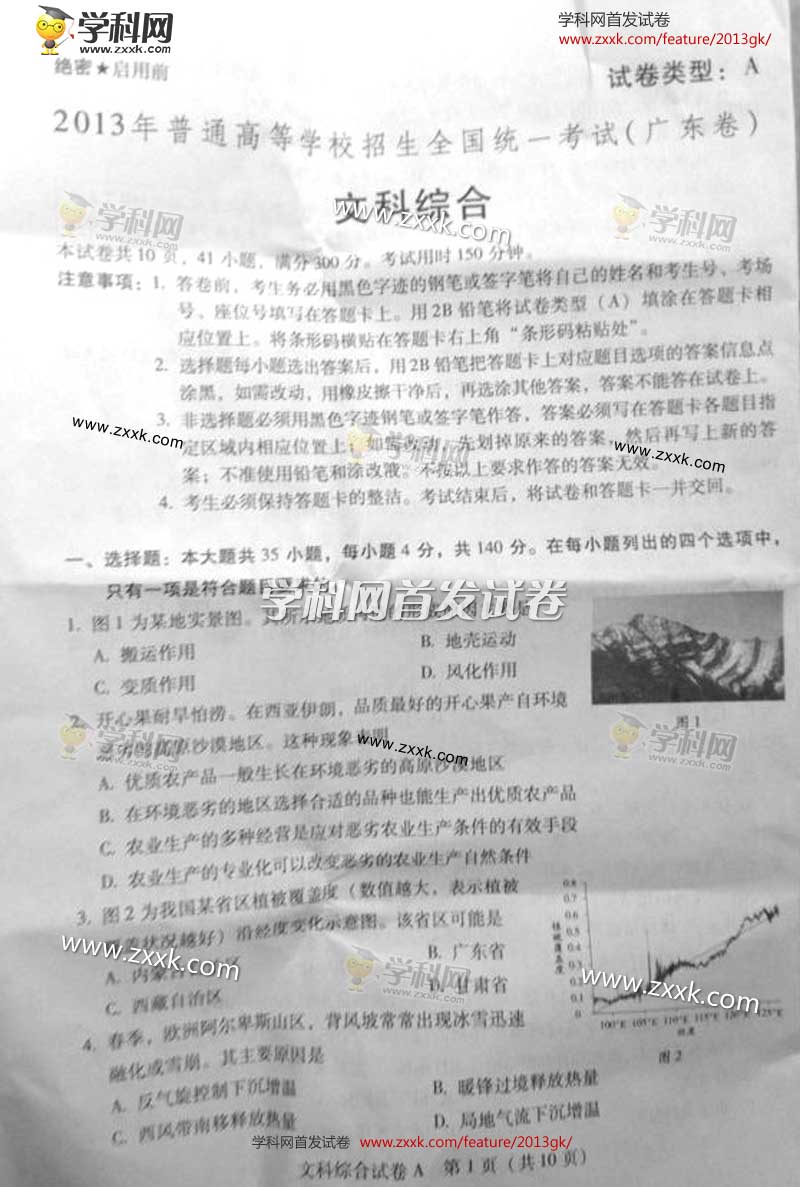 学科网
www.zxxk.com
学科网首发试卷
www.zxxk.com/feature/2013gk/
绝密★启用前
试卷类型：A
2013年普通高等学校招生全国统一考试（广东卷）
文科综合
学科网
www.zxxk.com
学科网
本试卷共10页，41小题，满分300分。考试用时150分钟。
注意事项：1. 答卷前，考生务必用黑色字迹的钢笔或签字笔将自己的姓名和考生号、考场
号、座位号填写在答题卡上。用2B铅笔将试卷类型（A）填涂在答题卡相
应位置上。将条形码横贴在答题卡右上角“条形码粘贴处”。
2. 选择题每小题选出答案后，用2B铅笔把答题卡上对应题目选项的答案信息点
涂黑，如需改动，用橡皮擦干净后，再选涂其他答案，答案不能答在试卷上。
3. 非选择题必须用黑色字迹钢笔或签字笔作答，答案必须写在答题卡各题目指
定区域内相应位置上；如需改动，先划掉原来的答案，然后再写上新的答
案；不准使用铅笔和涂改液。不按以上要求作答的答案无效。
4. 考生必须保持答题卡的整洁。考试结束后，将试卷和答题卡一并交回。
www.zxxk.com
学科网
www.zxxk.com
一、选择题：本大题共35小题，每小题4分，共140分。在每小题列出的四个选项中，
只有一项是符合题目
学科网首发试卷
1. 图1为某地实景图。其所
A. 搬运作用
B. 地壳运动
C. 变质作用
D. 风化作用
图1
2. 开心果耐旱怕涝。在西亚伊朗，品质最好的开心果产自环境
原沙漠地区。这种现象表明
学科网
www.zxxk.com
学科网
A. 优质农产品一般生长在环境恶劣的高原沙漠地区
B. 在环境恶劣的地区选择合适的品种也能生产出优质农产品
C. 农业生产的多种经营是应对恶劣农业生产条件的有效手段
D. 农业生产的专业化可以改变恶劣的农业生产自然条件
3. 图2为我国某省区植被覆盖度（数值越大，表示植被
状况越好）沿经度变化示意图。该省区可能是
A. 内蒙古 区
B. 广东省
C. 西藏自治区
D. 甘肃省
www.zxxk.com
学科网
www.zxxk.com
0.8
0.7
0.6
0.5
0.4
0.3
0.2
0.1
0
植被覆盖度
100°E 105°E 110°E 115°E 120°E 125°E
经度
图2
4. 春季，欧洲阿尔卑斯山区，背风坡常常出现冰雪迅速
融化或雪崩。其主要原因是
A. 反气旋控制下沉增温
B. 暖锋过境释放热量
C. 西风带南移释放热量
D. 局地气流下沉增温
学科网首发试卷
www.zxxk.com/feature/2013gk/
文科综合试卷A 第1页（共10页）